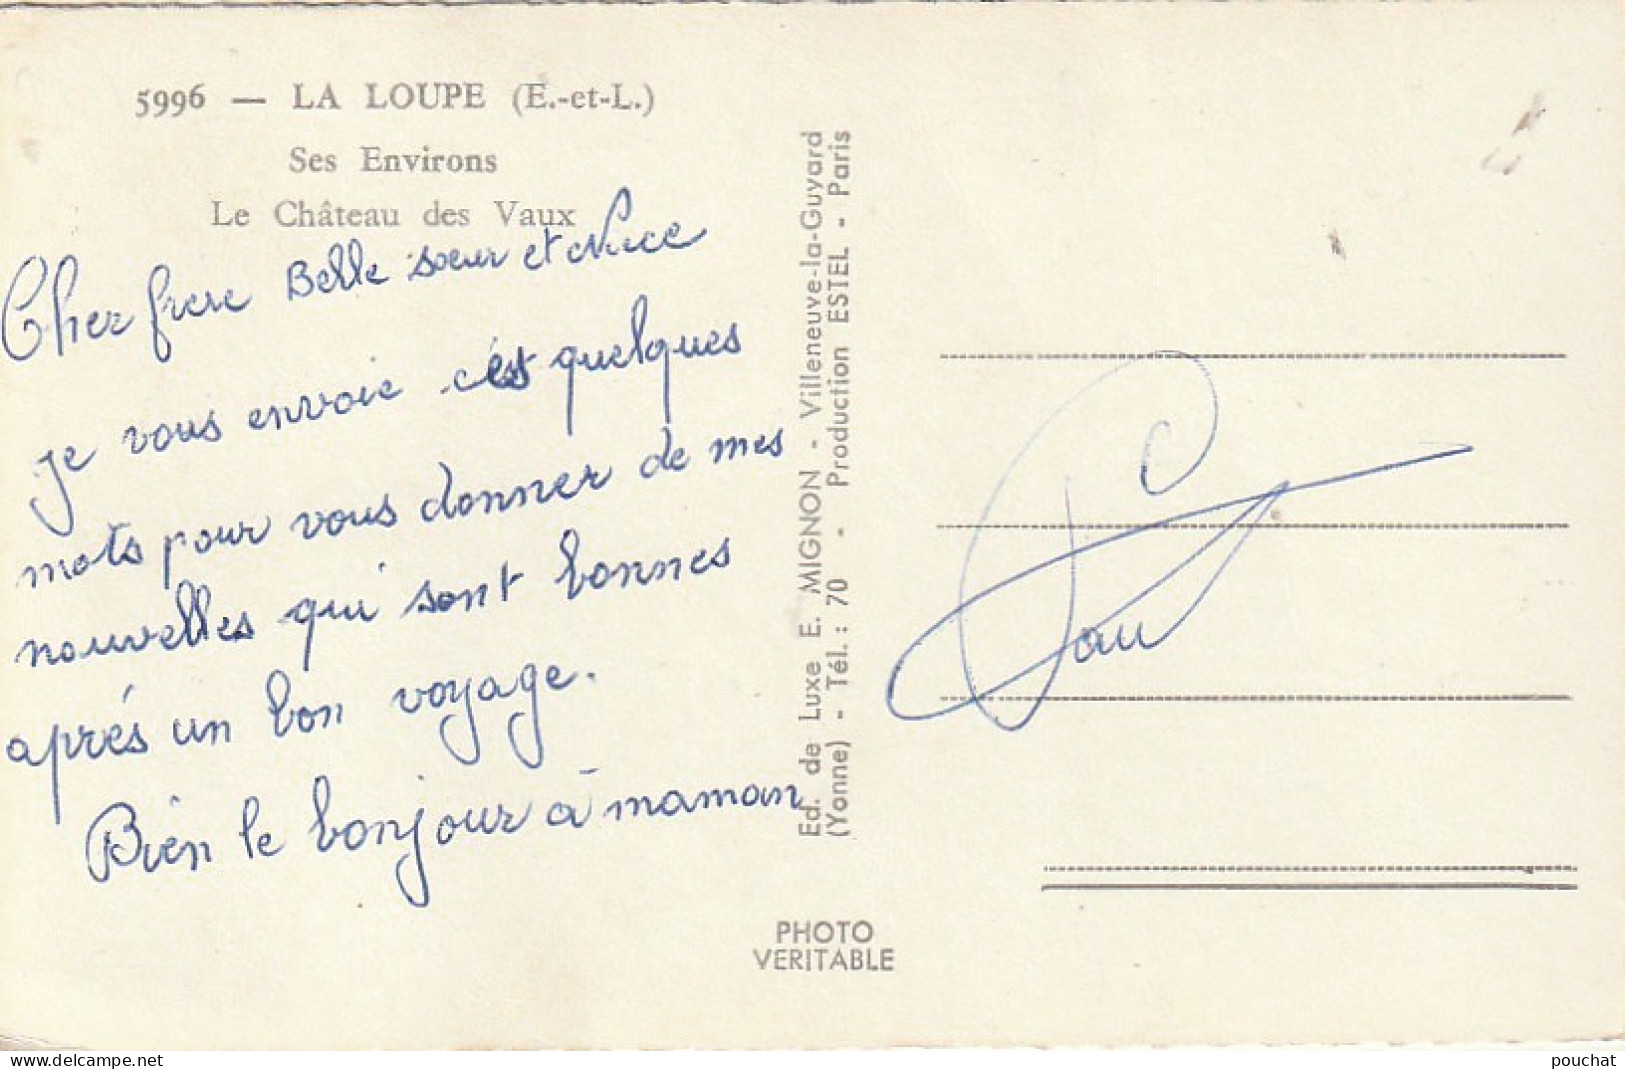 5996 — LA LOUPE (E.-et-L.)
Ses Environs
Le Château des Vaux
Cher frere Belle sœur et Niece
je vous envoie c'est quelques
mots pour vous donner de mes
nouvelles qui sont bonnes
aprés un bon voyage.
Bien le bonjour à maman
Ed. de Luxe E. MIGNON - Villeneuve-la-Guyard
(Yonne) - Tél. : 70 - Production ESTEL - Paris
PHOTO
VERITABLE
www.delcampe.net
pouchat